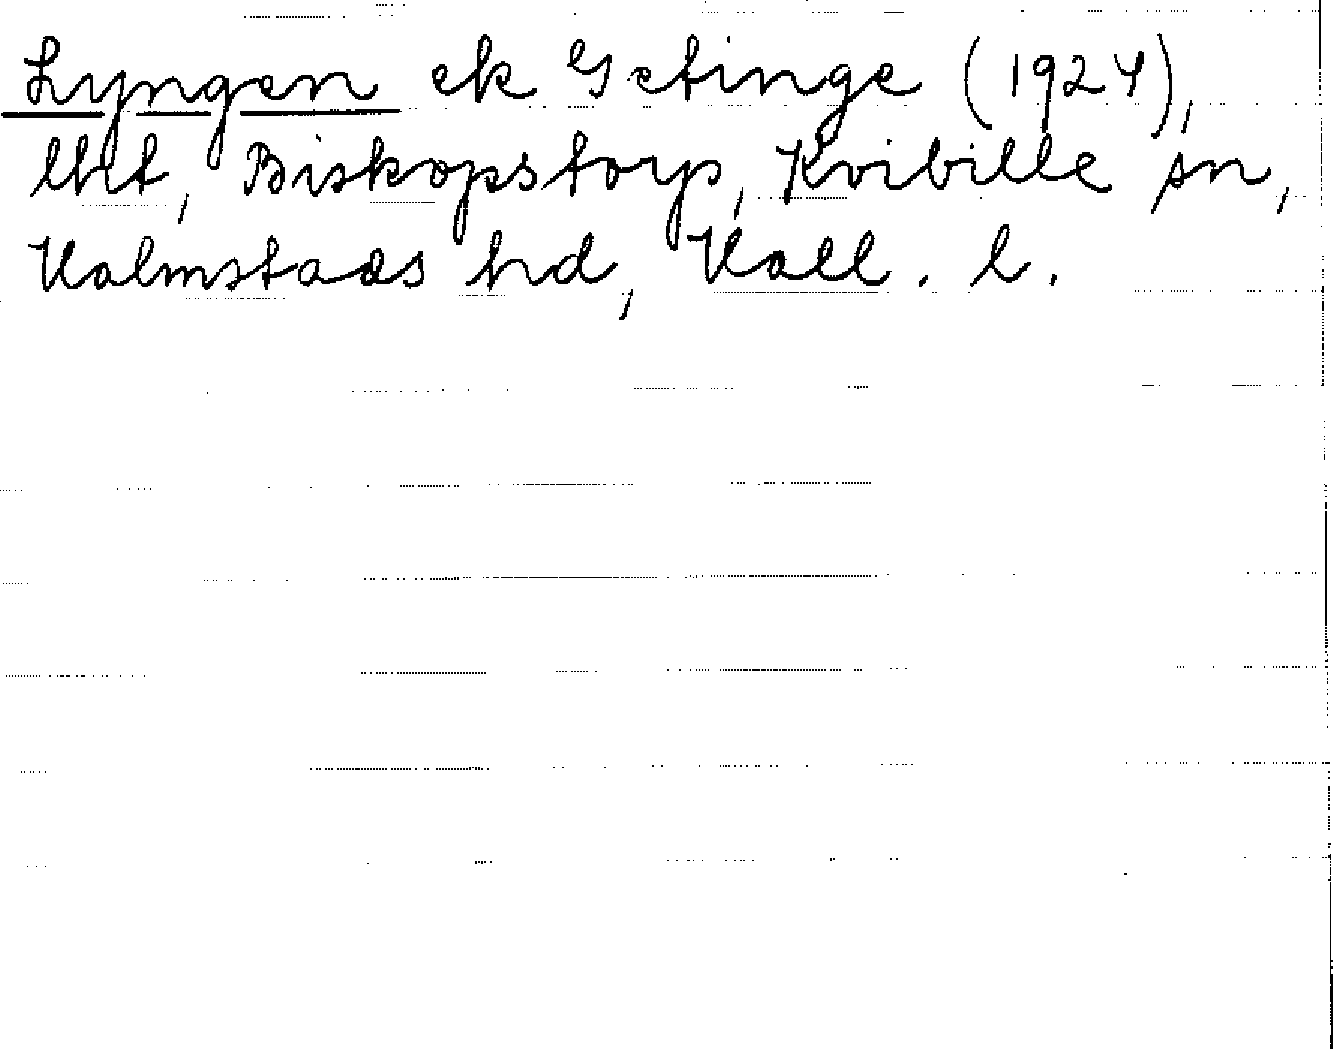 Lyngen ek Getinge (1924),
lht, Biskopstorp, Kvibille sn,
Halmstads hd, Hall. l.